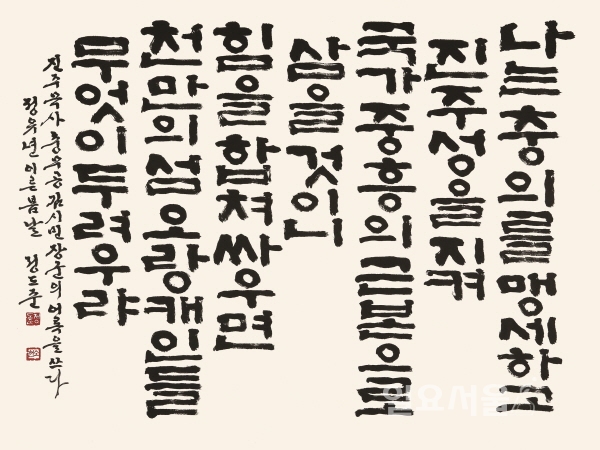 나는 충의를 맹세하고
진주성을 지켜
국가 중흥의 근본으로
삼을 것이니
힘을 합쳐 싸우면
천만의 섬 오랑캐인들
무엇이 두려우랴
진주목사 충무공 김시민 장군의 어록을 쓰다
정유년 이른 봄날 정도준
일요서울